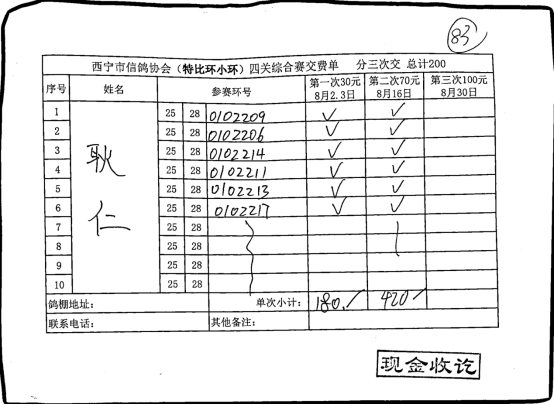 83
西宁市信鸽协会（特比环小环）四关综合赛交费单 分三次交 总计200
序号 姓名 参赛环号 第一次30元 8月2.3日 第二次70元 8月16日 第三次100元 8月30日
耿仁
1 25 28 0102209 ✓ ✓
2 25 28 0102206 ✓ ✓
3 25 28 0102214 ✓ ✓
4 25 28 0102211 ✓ ✓
5 25 28 0102213 ✓ ✓
6 25 28 0102217 ✓ ✓
7 25 28
8 25 28
9 25 28
10 25 28
鸽棚地址： 单次小计： 180✓ 420✓
联系电话： 其他备注：
现金收讫